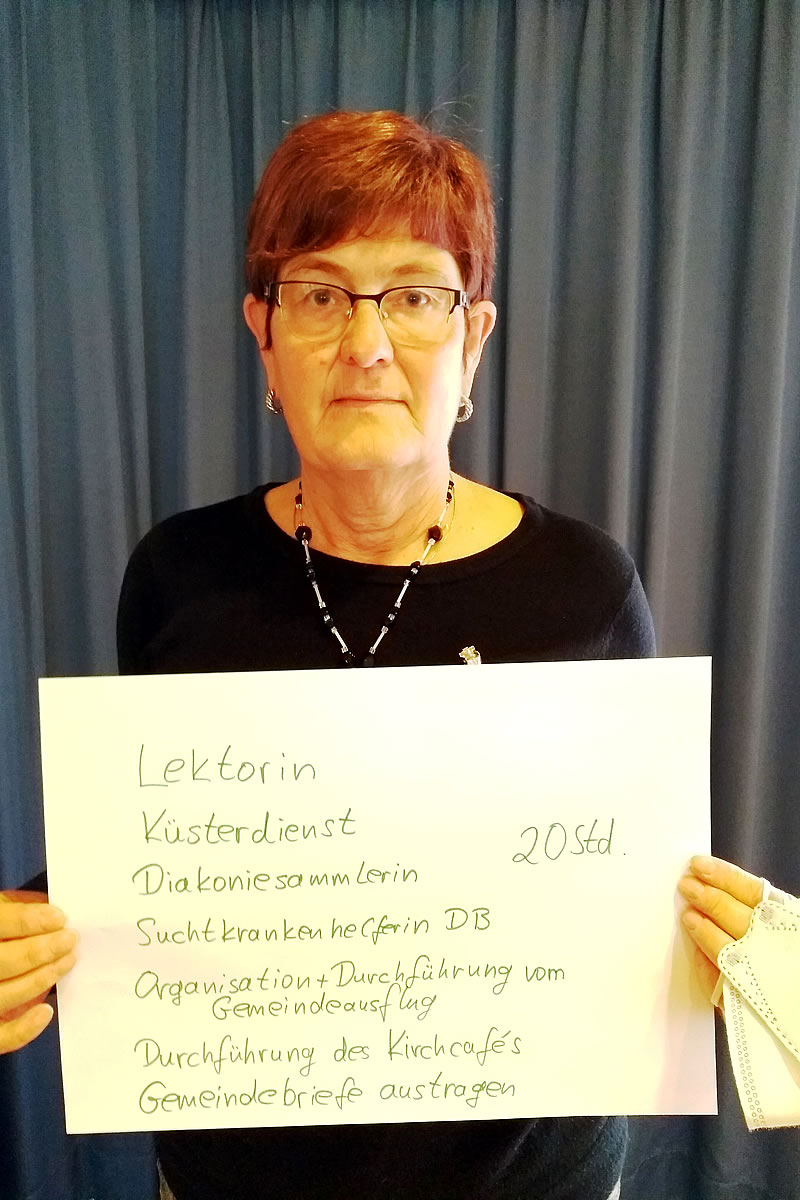 Lektorin
Küsterdienst
20 Std.
Diakoniesammlerin
Suchtkrankenhelferin DB
Organisation + Durchführung vom
Gemeindeausflug
Durchführung des Kirchcafé's
Gemeindebriefe austragen